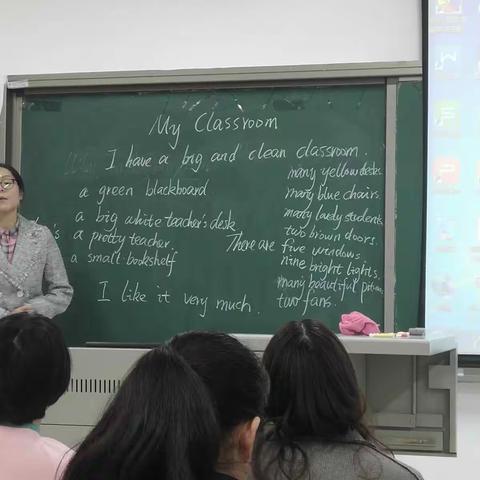 My Classroom
I have a big and clean classroom.
a green blackboard
a big white teacher's desk
a pretty teacher.
a small bookshelf
There are
many yellow desks
many blue chairs
many lovely students
two brown doors.
five windows
nine bright lights.
many beautiful
two fans.
I like it very much.